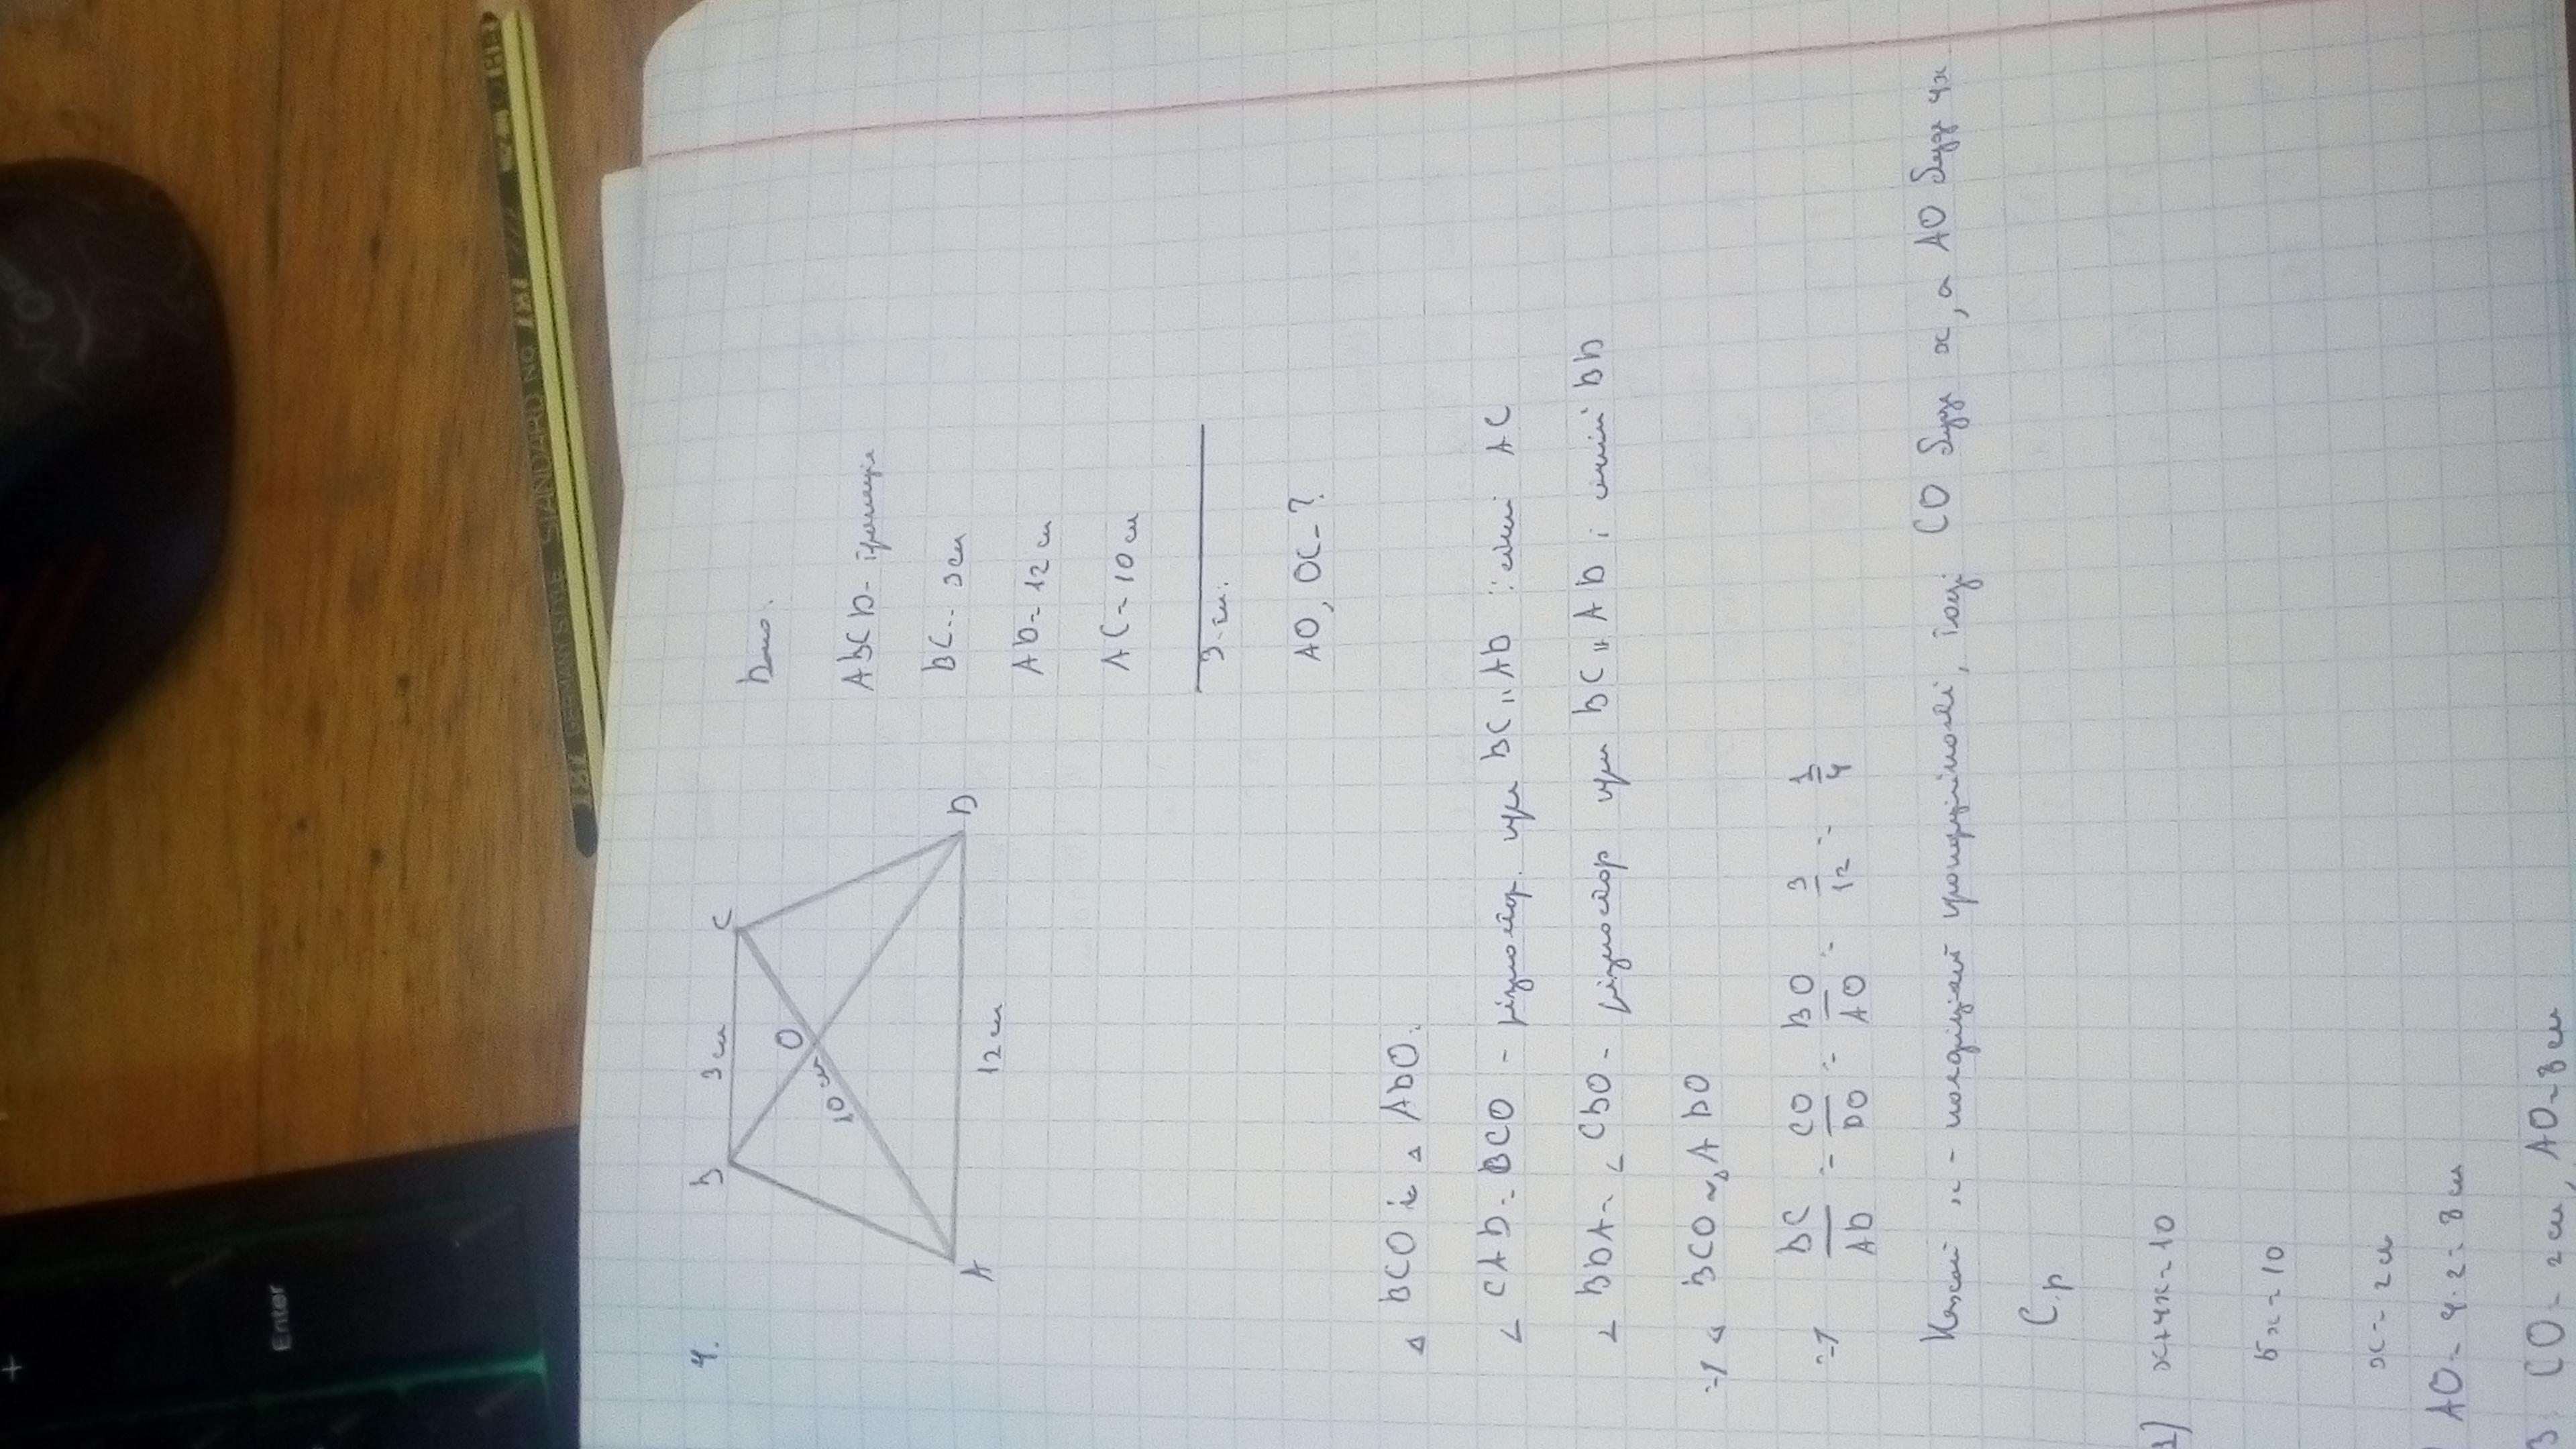 4.
B 3 см C
O
10 см
A 12 см D
Дано:
ABCD - трапеція
BC = 3 см
AD = 12 см
AC = 10 см
З-ти:
AO, OC - ?
△ BCO і △ ADO.
∠ CAD = BCO - різностор. при BC || AD і січній AC
∠ BDA = ∠ CBO - різностор при BC || AD і січній BD
=> △ BCO ~ △ ADO
=> BC/AD = CO/DO = BO/AO = 3/12 = 1/4
Нехай x - коефіцієнт пропорційності, тоді CO буде x, а AO буде 4x
С.р
x+4x=10
5x=10
x=2см
AO=4·2=8см
В: CO=2см, AO=8см
+
Enter
STANDARD NO